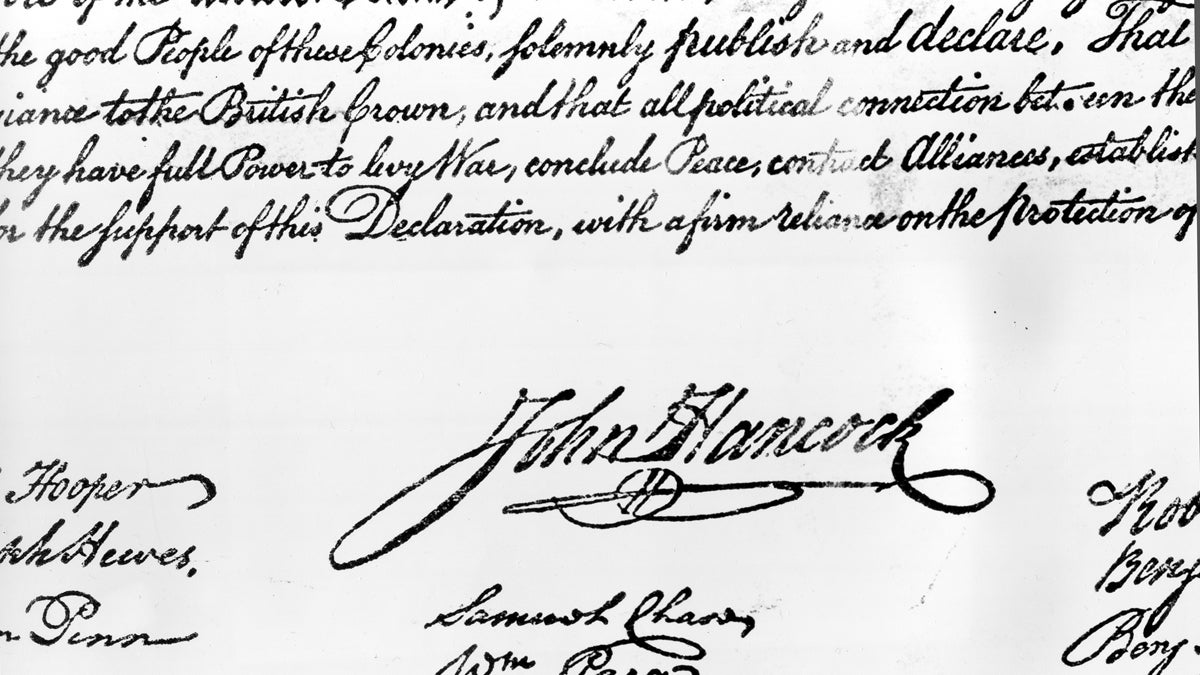 the good People of these Colonies, solemnly publish and declare, That
to the British Crown, and that all political connection between the
they have full Power to levy War, conclude Peace, contract Alliances, establish
for the support of this Declaration, with a firm reliance on the protection of
John Hancock
Hooper
Hewes,
Penn
Samuel Chase,
Wm Paca
Rob
Benj
Benj